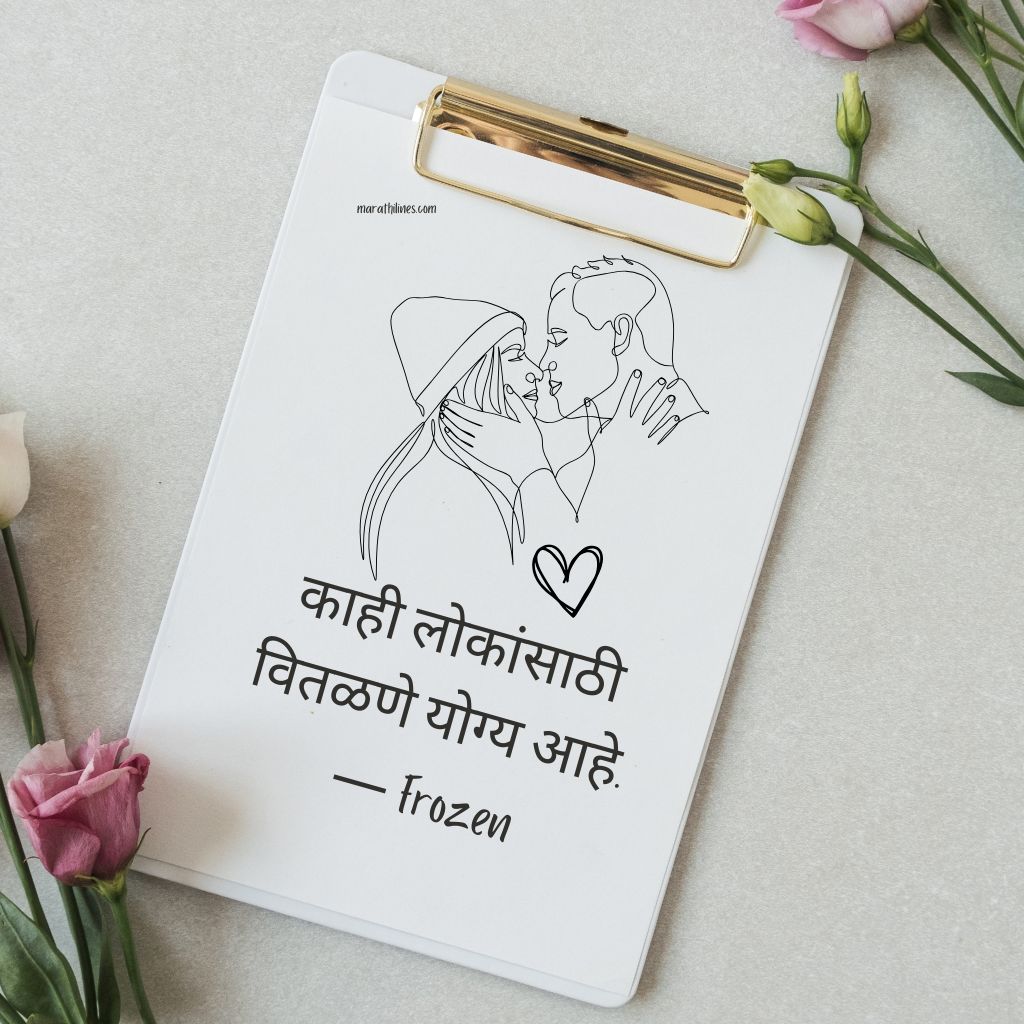 marathilines.com
काही लोकांसाठी
वितळणे योग्य आहे.
— Frozen